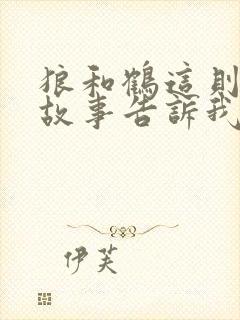 狼和鶴這則
故事告訴我
伊芙